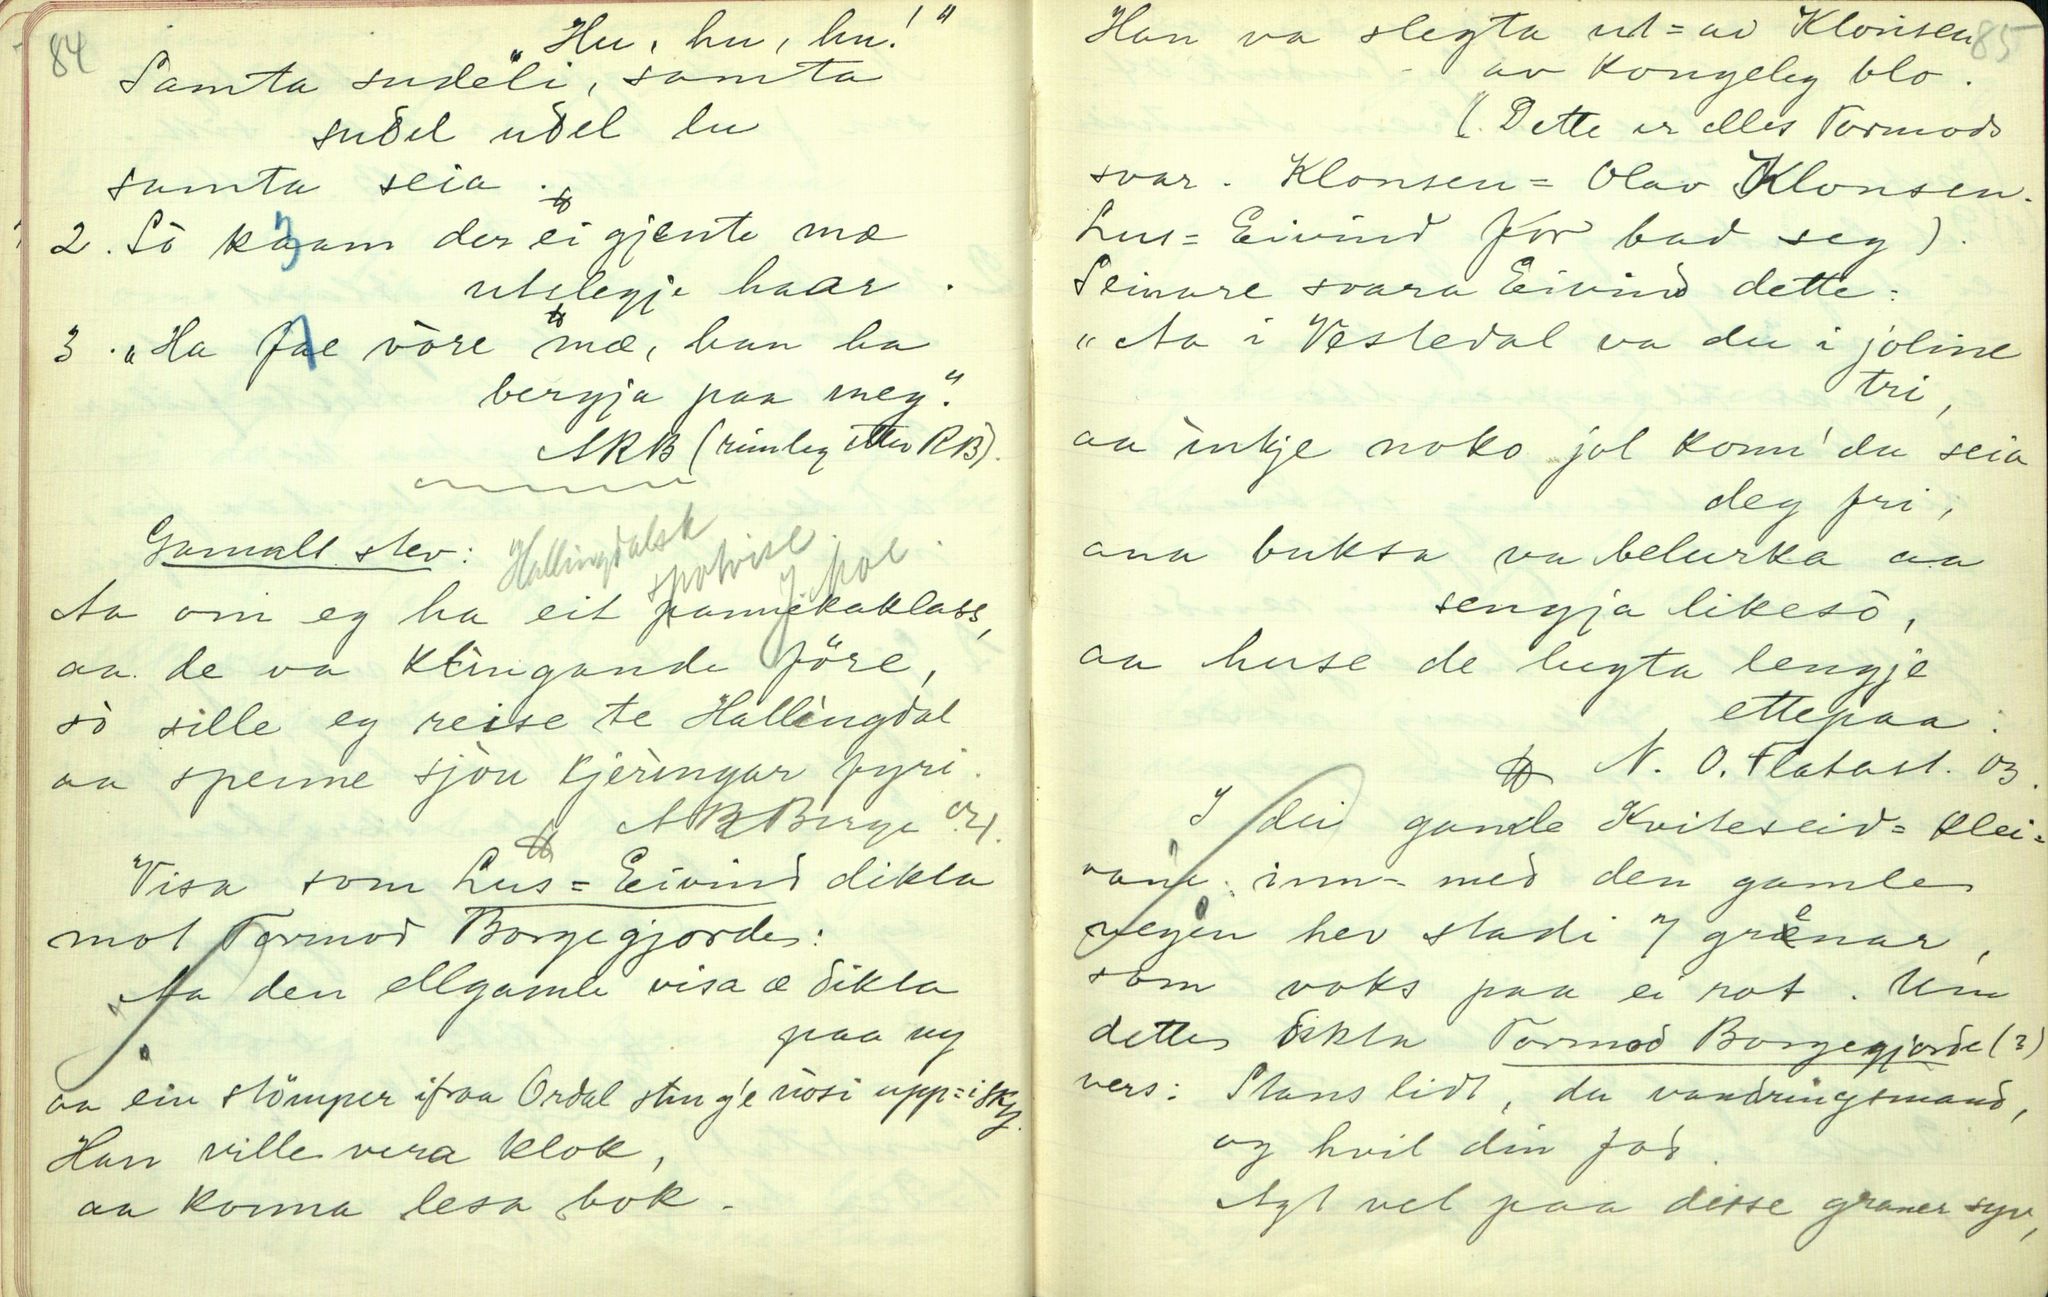 84
„Hu, hu, hu!"
Samta sudeli, samta
sudel udel lu
samta seia.
2. Sò kaam der ei gjente mæ
utslegje haar.
3. „Ha fae vòre mæ, han ha
bergja paa meg."
ARB (rimleg etter RB).
Gamalt stev: Hallingdalsk
spotvise.
Aa om eg ha eit pannekaklass,
aa de va klingande före,
sò sille eg reise te Hallingdal
aa spenne sjòu kjeringar fyri.
A R Berge
Visa som Lus=Eivind dikta
mot Tormod Borgegjorde:
Aa den ellgamle visa æ dikta
paa ny
aa ein stömper ifraa Ordal stinge nòsi upp=i sky.
Han ville vera klok,
aa konna lesa bok.
85
Han va slegta ut=av Klonsen
av kongeleg blo.
(Dette er elles Tormods
svar. Klonsen = Olav Klonsen.
Lus=Eivind for bad seg).
Seinare svara Eivind dette:
„Aa i Vestedal va du i joline
tri,
aa inkje noko jol konn' du seia
deg fri,
ana buksa va belurka aa
sengja likesò,
aa huse de lugta lengje
ettepaa.
N. O. Flatast. 03.
I dei gamle Kviteseid=klei=
vane inn= med den gamle
vegen hev stadi 7 grenar,
som voks paa ei rot. Um
dette dikta Tormod Borgegjorde (?)
vers: Stans lidt, du vandringsmand,
og hvil din fod.
Agt vel paa disse graner syv,